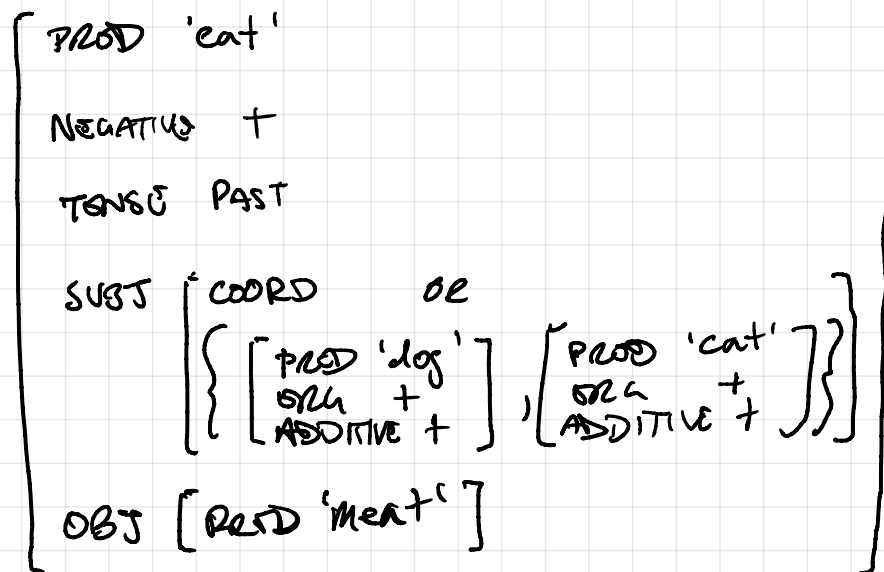 PRED 'eat'
NEGATIVE +
TENSE PAST
SUBJ [ COORD OR
{ [ PRED 'dog' ] , [ PRED 'cat' ] } ]
ORG + ORG +
ADDITIVE + ADDITIVE +
OBJ [ PRED 'meat' ]